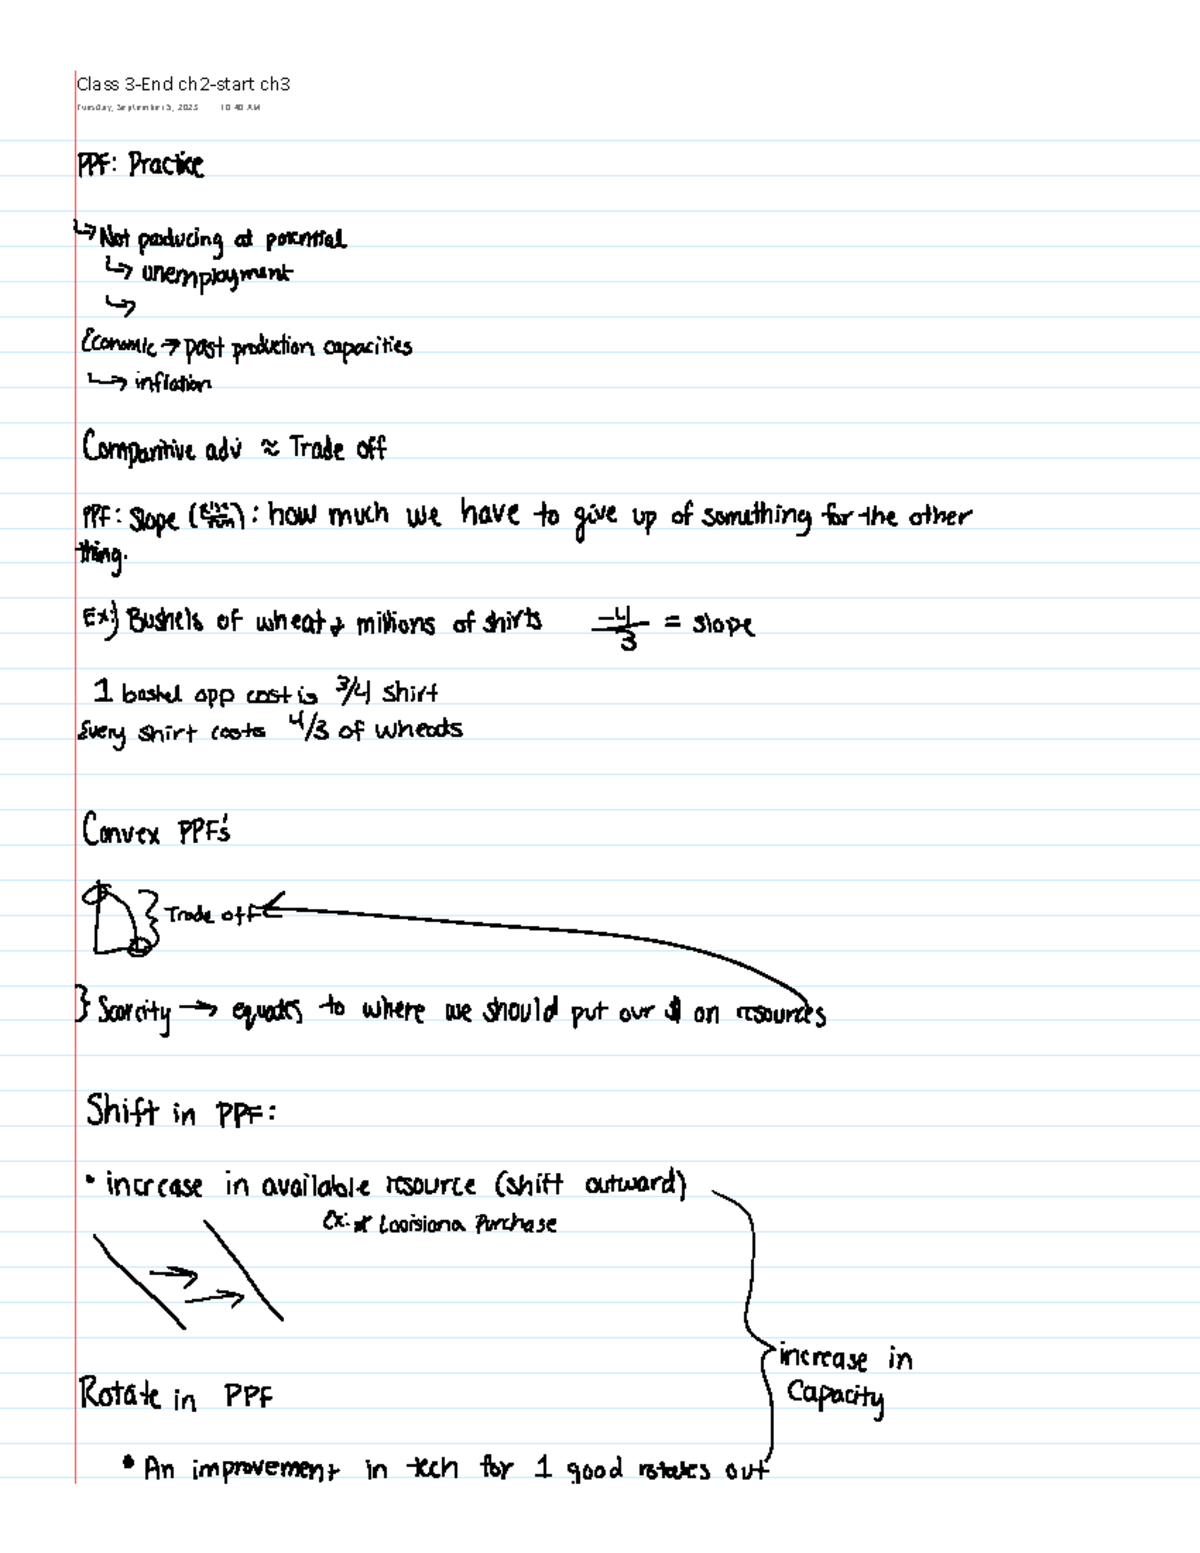 Class 3-End ch2-start ch3
Tuesday, September 5, 2023 10:40 AM
PPF: Practice
↳ Not producing at potential
↳ unemployment
↳
Economic → past production capacities
↳ inflation
Comparitive adv ≈ Trade off
PPF: Slope (rise/run): how much we have to give up of something for the other
thing.
Ex) Bushels of wheat + millions of shirts -4/3 = slope
1 bashel opp cost is 3/4 shirt
Every shirt costs 4/3 of wheats
Convex PPF's
} Trade off
} Scarcity → equates to where we should put our $ on resources
Shift in PPF:
• increase in available resource (shift outward)
Ex: Louisiana Purchase
increase in
Capacity
Rotate in PPF
• An improvement in tech for 1 good rotates out